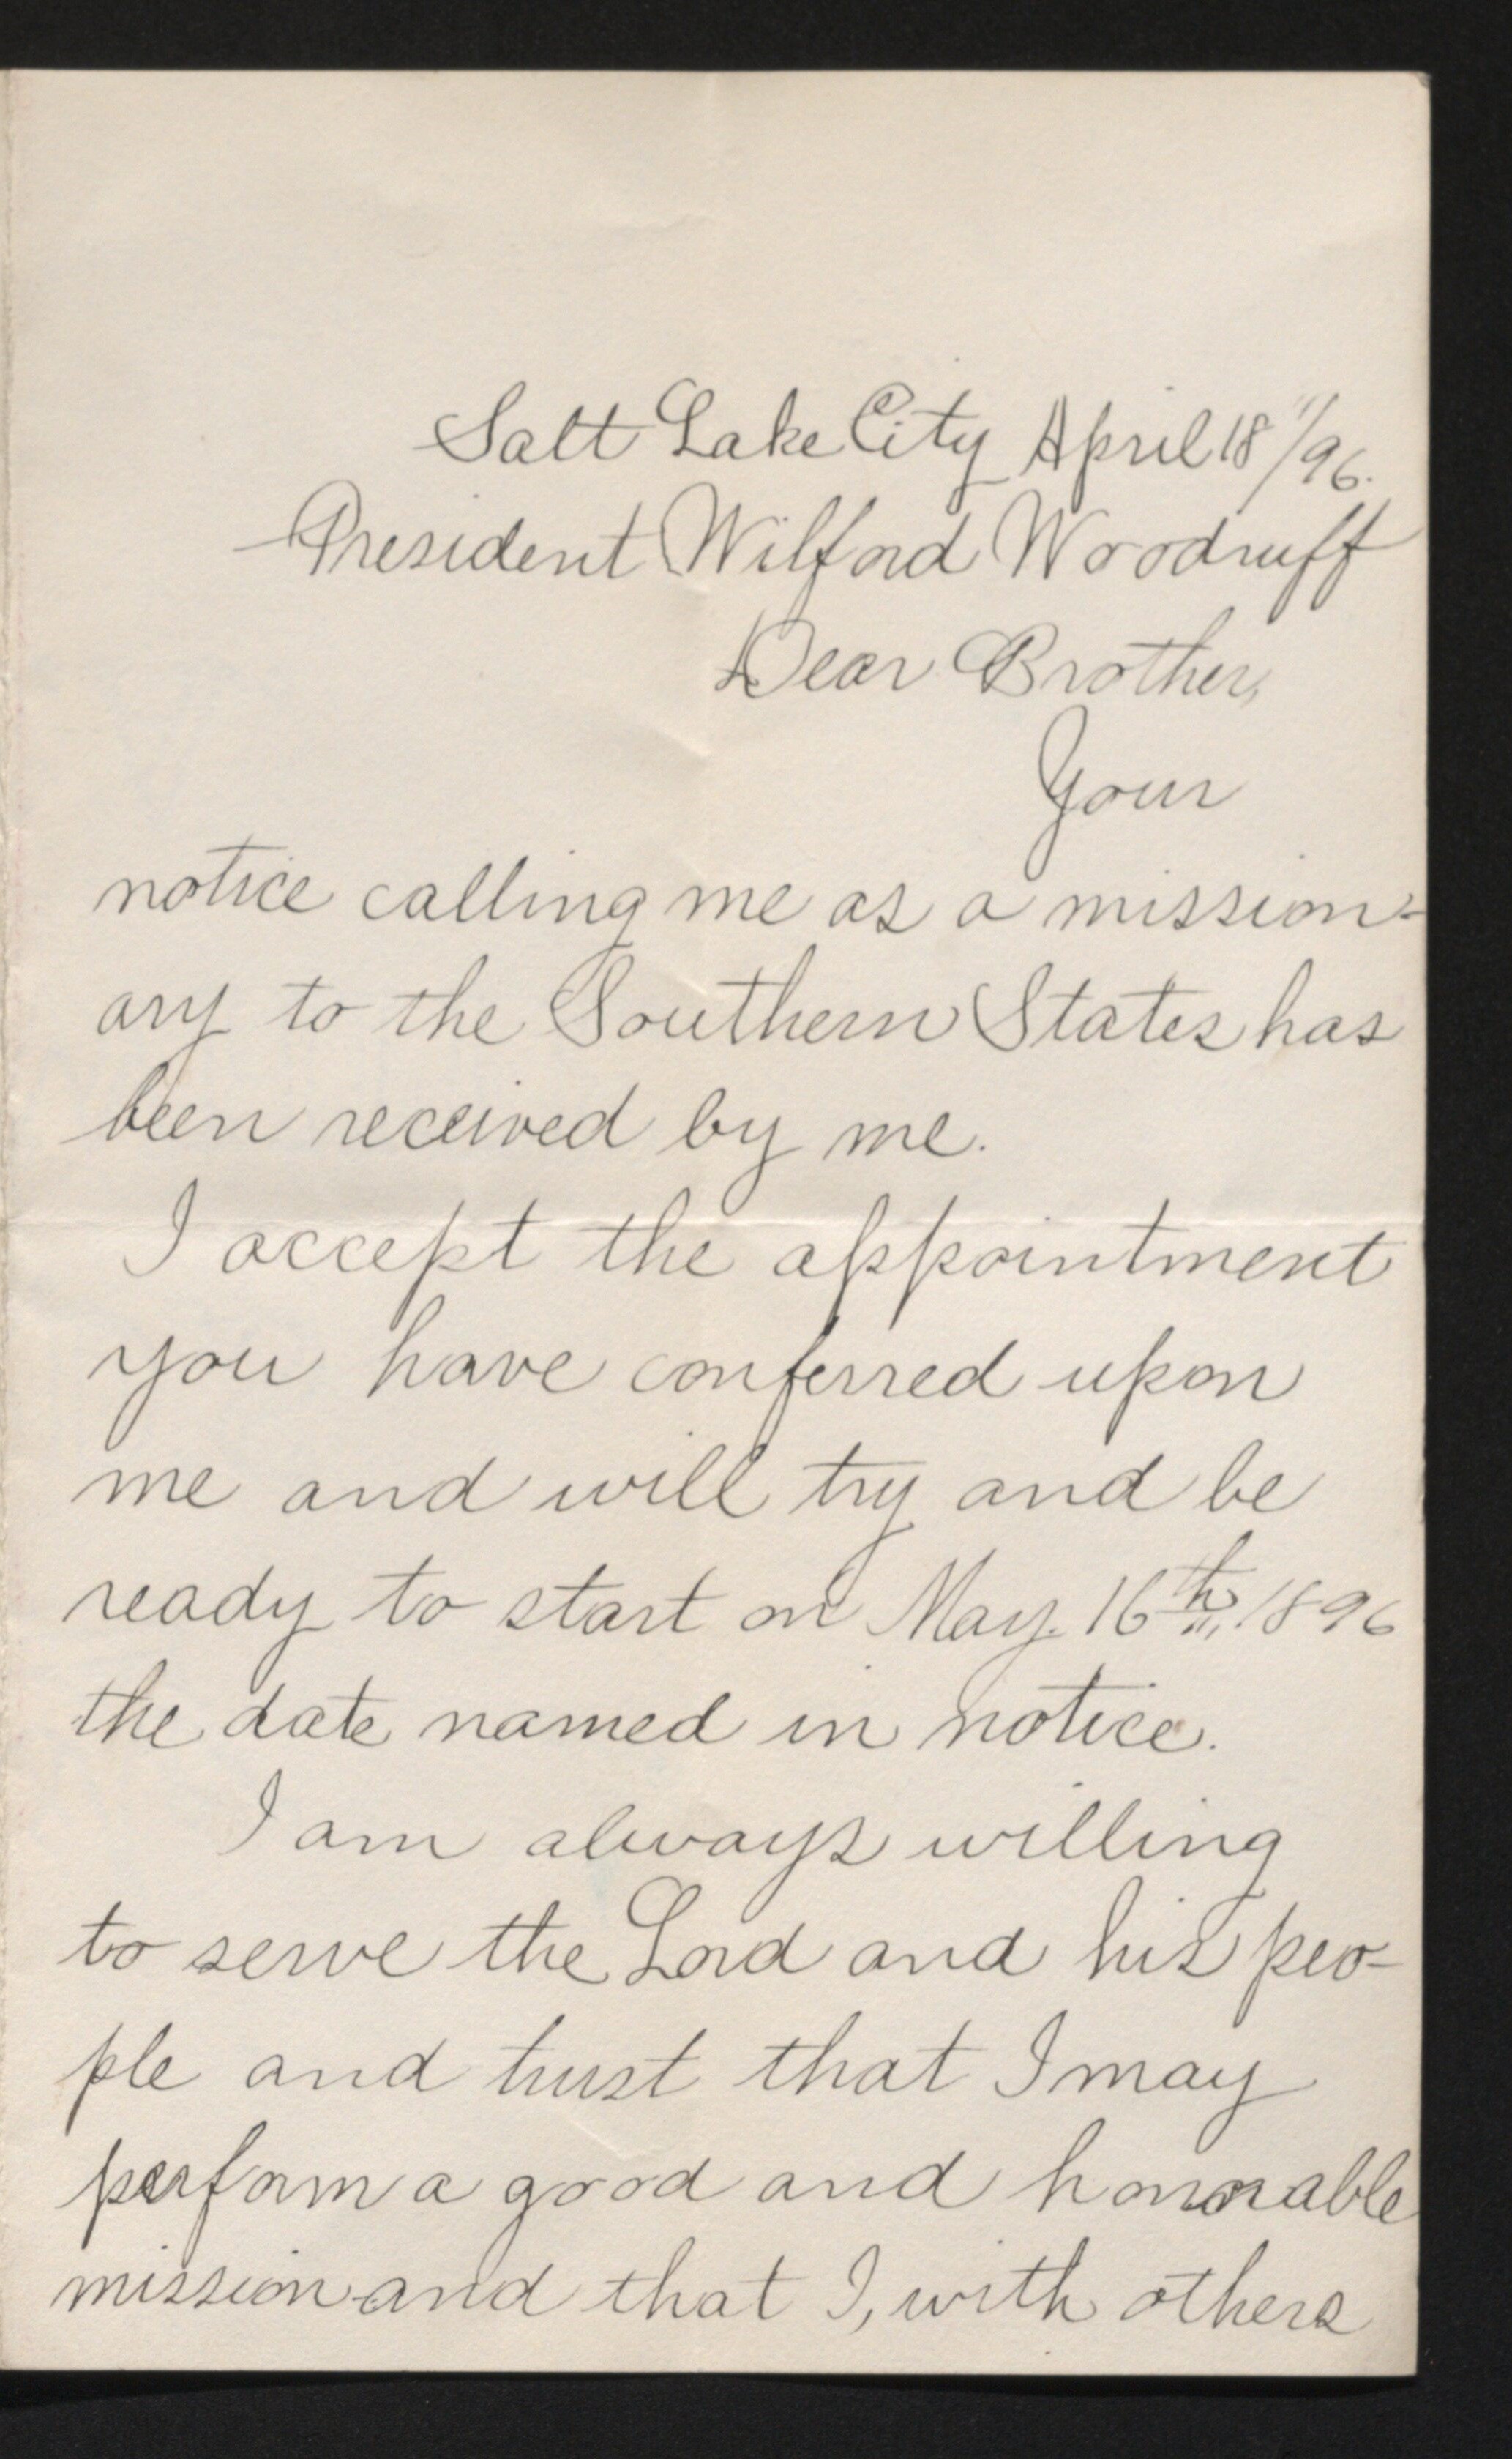 Salt Lake City April 18"/96.
President Wilford Woodruff
Dear Brother,
Your
notice calling me as a mission-
ary to the Southern States has
been received by me.
I accept the appointment
you have conferred upon
me and will try and be
ready to start on May. 16th. 1896
the date named in notice.
I am always willing
to serve the Lord and his peo-
ple and trust that I may
perform a good and honorable
mission and that I, with others